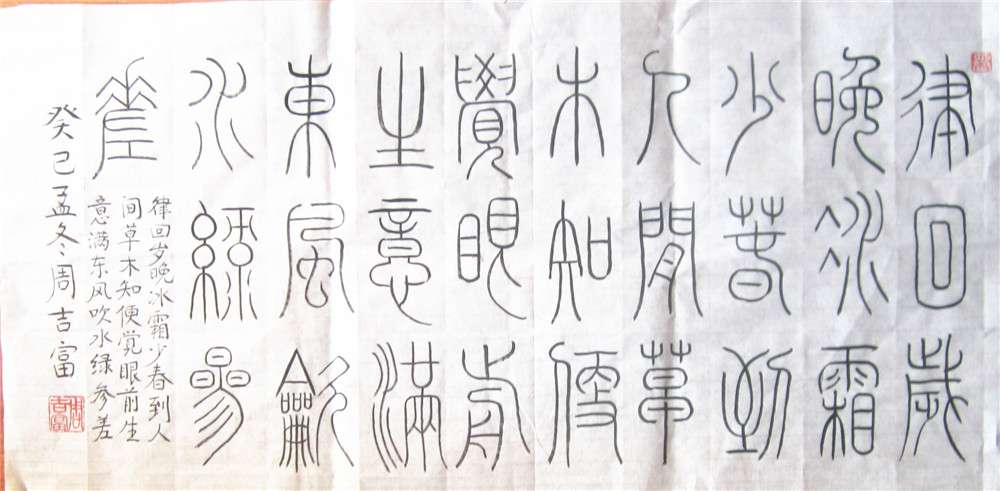 律回歲
晚冰霜
少春到
人間草
木知便
覺眼前
生意滿
東風龡
水綠參
差
律回岁晚冰霜少春到人
间草木知便觉眼前生
意满东风吹水绿参差
癸己孟冬周吉富
周吉富